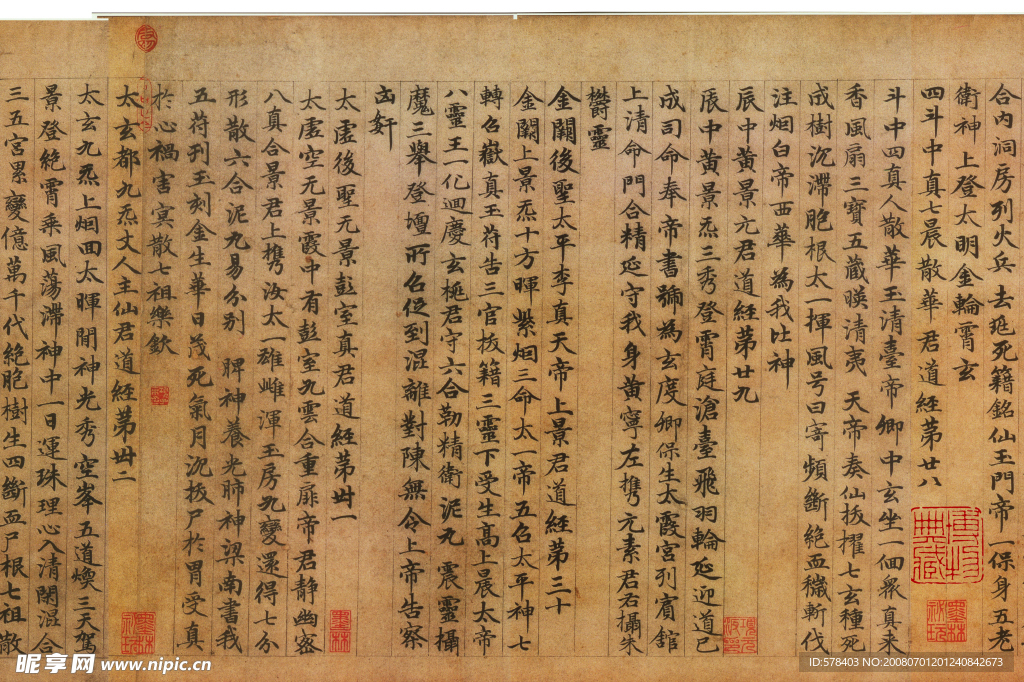 合内洞房列火兵去珽死籍銘仙玉門帝一保身五老
衛神上登太明金輪霄玄
四斗中真七晨散華君道經第廿八
斗中四真人散華玉清臺帝卿中玄坐一個眾真來
香風扇三寶五藏暎清夷天帝奏仙拔擢七玄種死
成樹沉滯胞根太一揮風号曰寄頻斷絕血穢斬伐
注烟白帝西華為我比神
辰中黄景元君道經第廿九
辰中黄景炁三秀登霄庭滄臺飛羽輪延迎道已
成司命奉帝書號為玄度卿保生太霞宮列賓館
上清命門合精延守我身黄寧左攜元素君右攝朱
欝靈
金闕後聖太平李真天帝上景君道經第三十
金闕上景炁十方暉紫烟三命太一帝五名太平神七
轉名嶽真王符告三官拔籍三靈下受生髙上晨太帝
八靈王一化迴慶玄梔君守六合勒精衛泥丸震靈攝
魔三舉登壇所名促到混離對陳無令上帝告察
凶奸
太虛後聖元景彭室真君道經第卅一
太虛空无景霞中有彭室九雲合重扉帝君静幽密
八真合景君上攜汝太一雄雌渾玉房九變還得七分
形散六合泥丸易分别脾神養光肺神梁南書我
五符刊玉刻金生華日茂死氣月沉拔尸於胃受真
於心禍害冥散七祖樂欽
太玄都九炁丈人主仙君道經第卅二
太玄九炁上烟回太暉開神光秀空峯五道煥三天駕
景登絕霄乘風蕩滯神中一日運珠理心入清閑混合
三五宮累變億萬千代絕胞樹生四斷血尸根七祖散
博物
典藏
墨林
祕玩
墨林
項元
墨林
祕玩
昵享网 www.nipic.cn
ID:578403 NO:20080701201240842673